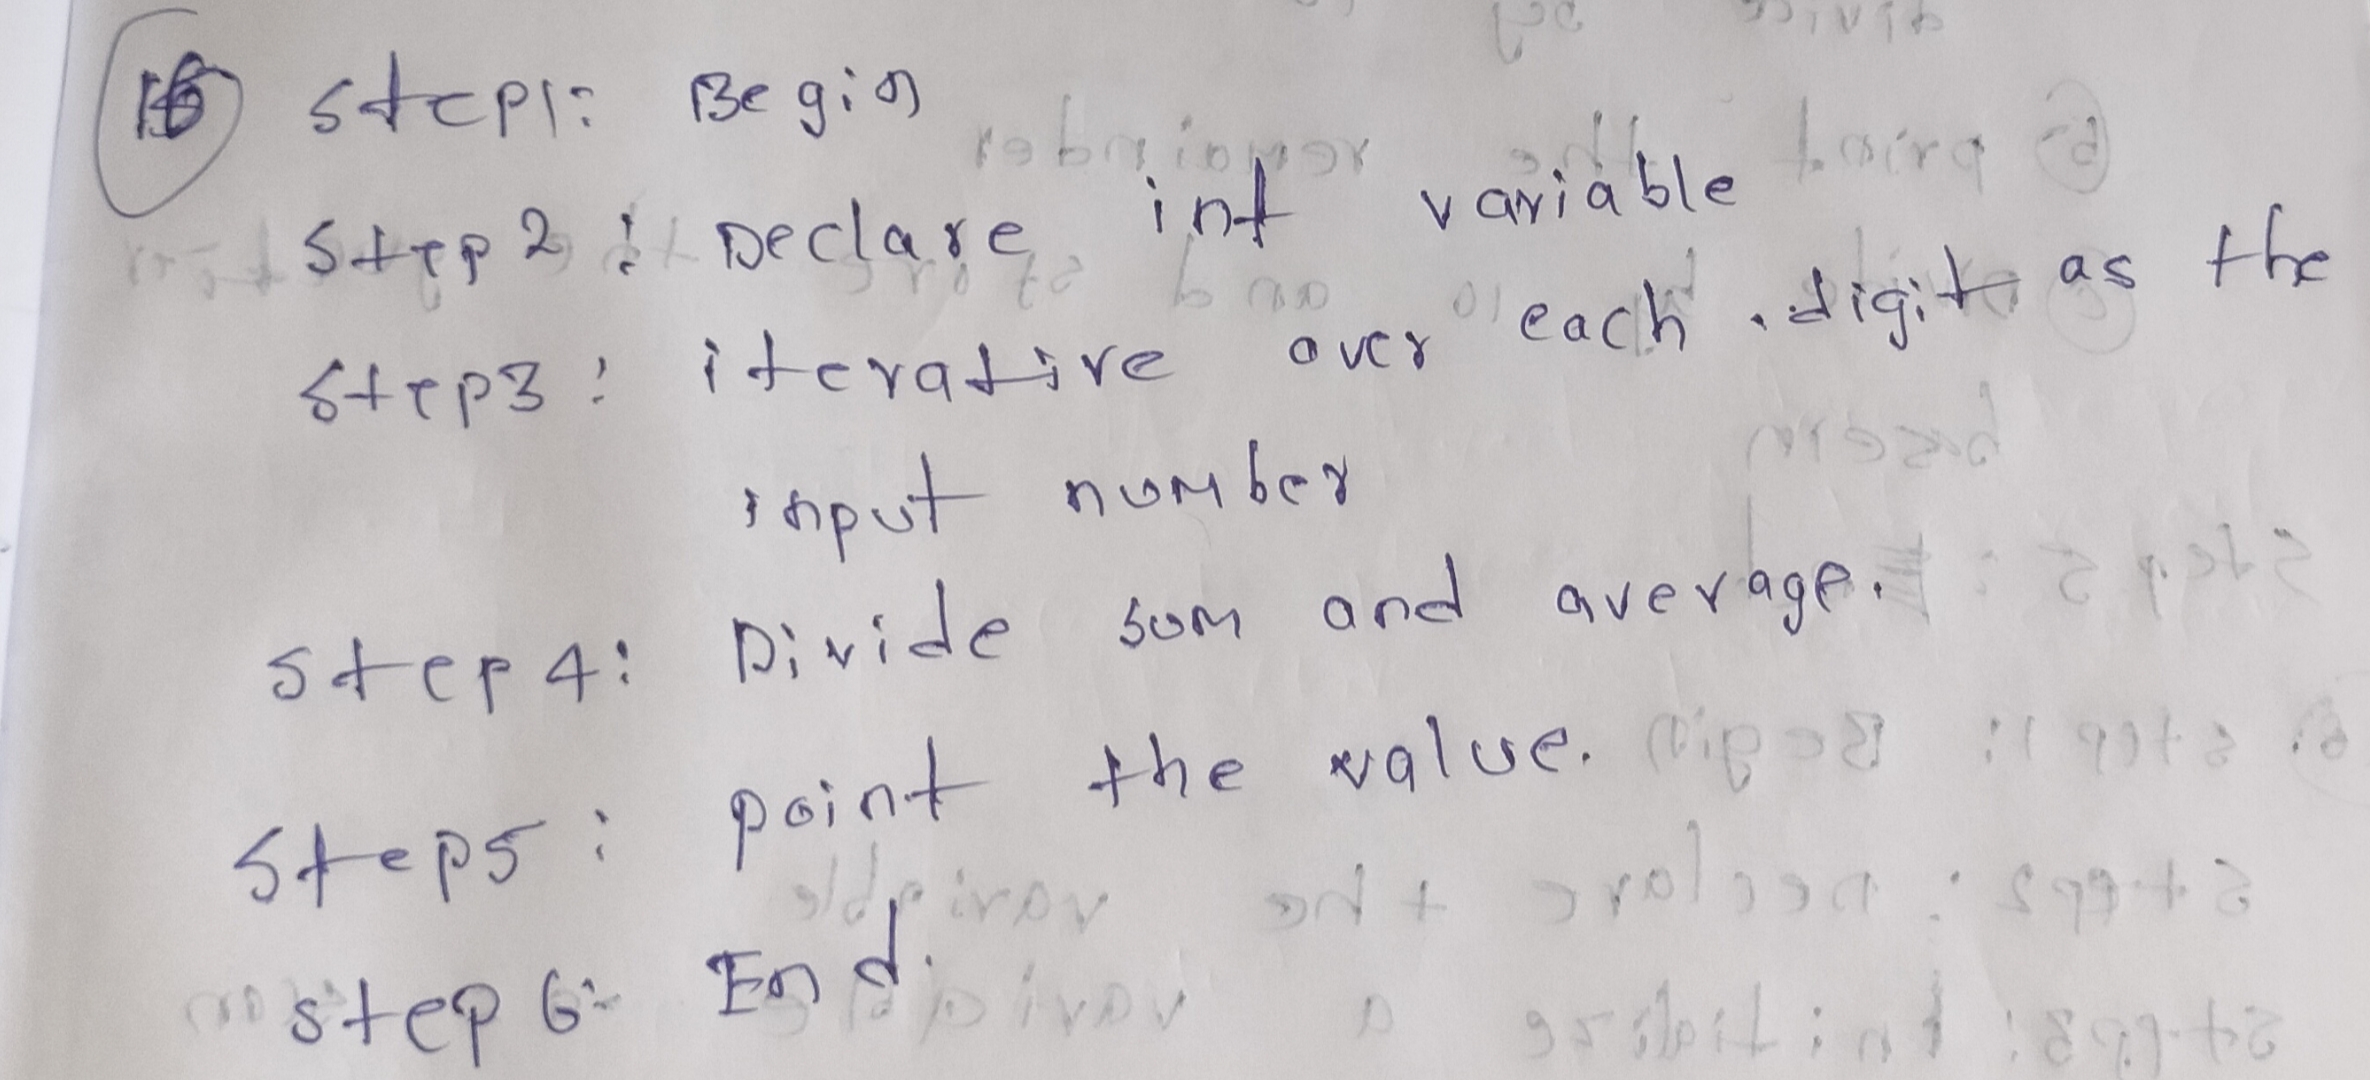 Step1: Begin
Step2: Declare int variable
Step3: iterative over each digit as the
input number
Step4: Divide sum and average.
Step5: point the value.
Step 6: End.